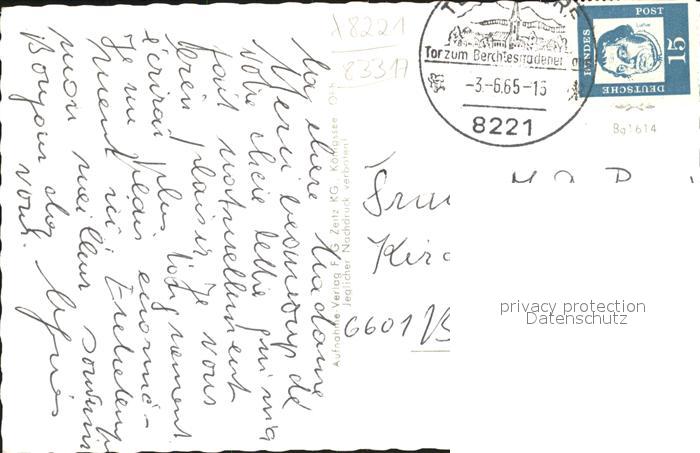 Ma chère Madame
Merci beaucoup de
votre chère lettre qui m'a
fait naturellement
plaisir. Je vous
écrirai plus longuement
Je me plais énormé-
ment ici
mon meilleur souvenir
Bonjour chez
vous. Agnès
Aufnahme-Verlag F. G. Zeitz KG. Königssee Obb.
Jeglicher Nachdruck verboten!
A8221
83317
Tor zum Berchtesgadener
-3.-6.65-15
8221
DEUTSCHE BUNDES POST
15
Luther
Bg1614
Frau
6601
privacy protection
Datenschutz